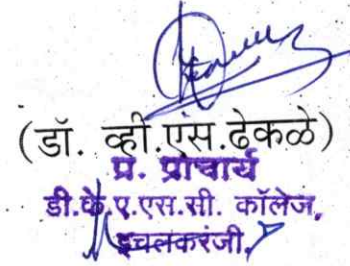 (डॉ. व्ही.एस.ढेकळे)
प्र. प्राचार्य
डी.के.ए.एस.सी. कॉलेज,
इचलकरंजी.